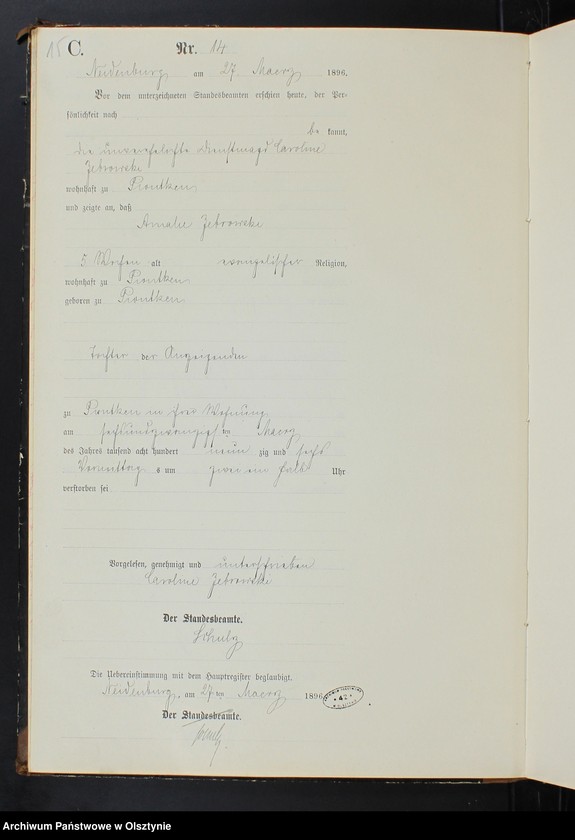 15 C. Nr. 14
Neidenburg, am 27 Maerz 1896.
Vor dem unterzeichneten Standesbeamten erschien heute, der Per-
sönlichkeit nach
be kannt,
die unverehelichte Dienstmagd Caroline
Zebrowski
wohnhaft zu Piontken
und zeigte an, daß
Amalie Zebrowski
5 Wochen alt evangelischer Religion,
wohnhaft zu Piontken
geboren zu Piontken
Tochter der Anzeigenden
zu Piontken in ihrer Wohnung
am sechsundzwanzigsten Maerz
des Jahrs tausend acht hundert neun zig und sechs
Vormittags um zwei ein halb Uhr
verstorben sei
Vorgelesen, genehmigt und unterschrieben
Caroline Zebrowski
Der Standesbeamte.
Schulz
Die Uebereinstimmung mit dem Hauptregister beglaubigt.
Neidenburg, am 27ten Maerz 1896
Der Standesbeamte.
Schulz
Archiwum Państwowe w Olsztynie